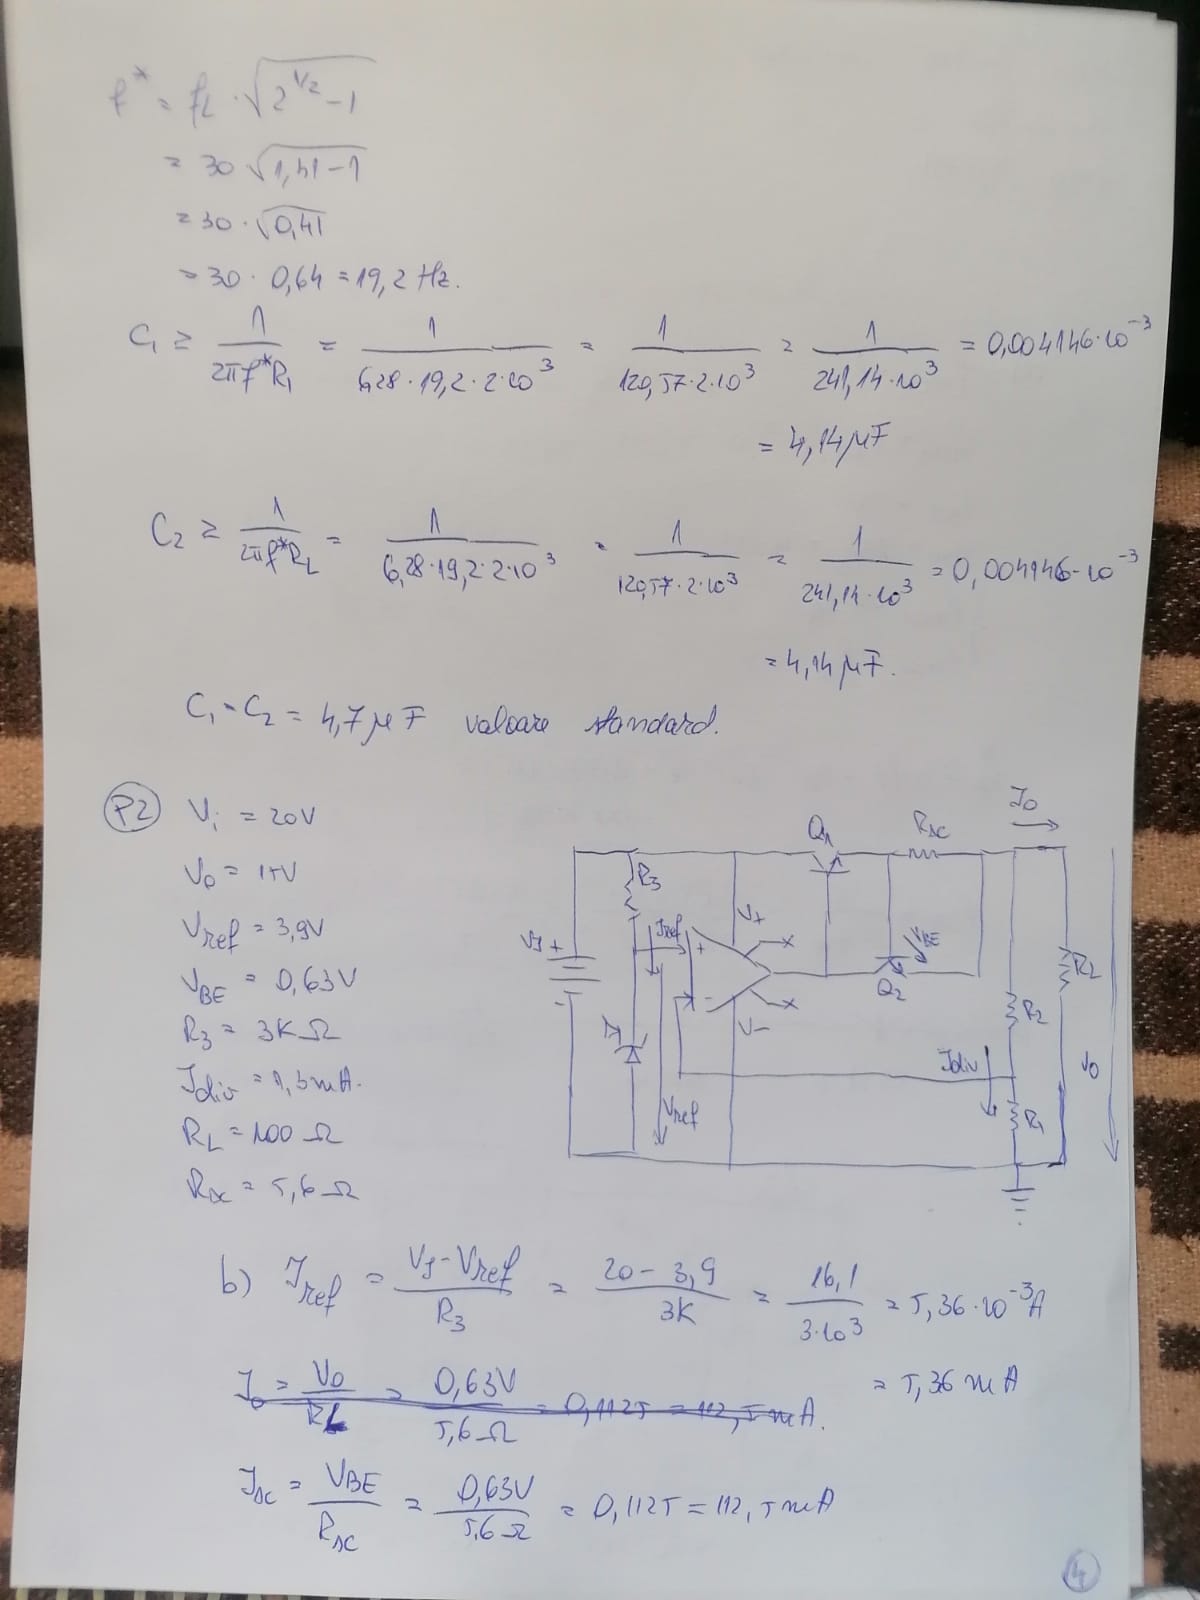 f* = fL · √(2^1/2 − 1)
= 30 √(1,41 − 1)
= 30 · √0,41
= 30 · 0,64 = 19,2 Hz.
C1 ≥ 1/(2πf*R1) = 1/(6,28 · 19,2 · 2 · 10^3) = 1/(120,57 · 2 · 10^3) = 1/(241,14 · 10^3) = 0,004146 · 10^-3
= 4,14 μF
C2 ≥ 1/(2πf*RL) = 1/(6,28 · 19,2 · 2 · 10^3) = 1/(120,57 · 2 · 10^3) = 1/(241,14 · 10^3) = 0,004146 · 10^-3
= 4,14 μF.
C1 = C2 = 4,7 μF valoare standard.
P2 Vi = 20V
V0 = 15V
Vref = 3,9V
VBE = 0,63V
R3 = 3KΩ
Idiv = 1,3mA.
RL = 100 Ω
Rsc = 5,6 Ω
I0
Q1 Rsc
R3
VI + Iref V+ VBE
+ −
Q2
V−
RL
R2
Idiv
V0
Vref
R1
b) Iref = (VI − Vref)/R3 = (20 − 3,9)/3K = 16,1/(3·10^3) = 5,36 · 10^-3 A
= 5,36 mA
I0 = V0/RL = 0,63V/5,6Ω = 0,1125 = 112,5 mA.
Isc = VBE/Rsc = 0,63V/5,6Ω = 0,1125 = 112,5 mA
4